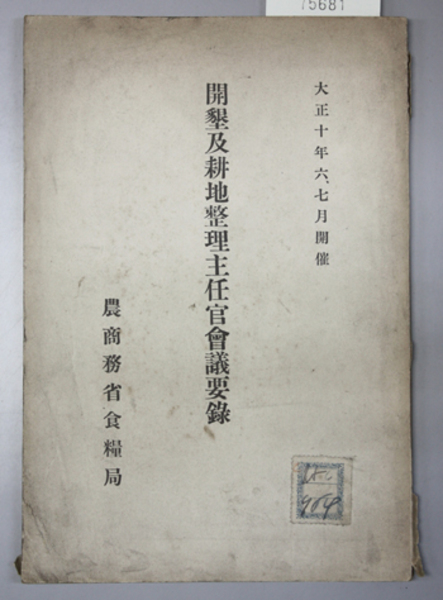 大正十年六、七月開催
開墾及耕地整理主任官會議要錄
農商務省食糧局
75681